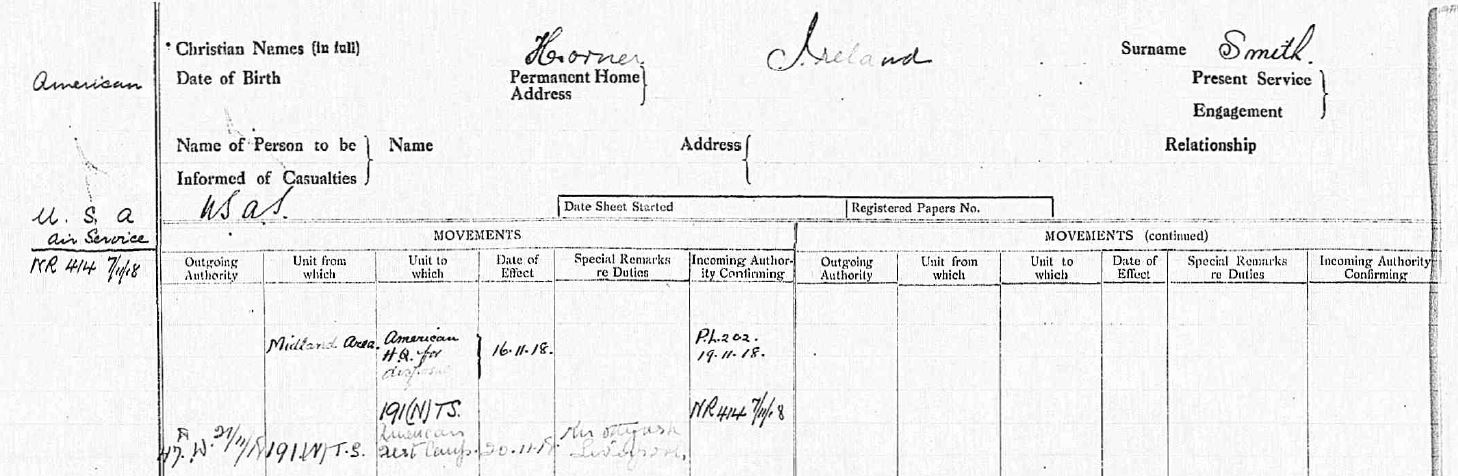 Christian Names (in full) Horner Ireland Surname Smith.
American Date of Birth Permanent Home Address Present Service Engagement
Name of Person to be Informed of Casualties Name Address Relationship
U. S. A
Air Service
USAS.
Date Sheet Started Registered Papers No.
NR 414 7/11/18
MOVEMENTS MOVEMENTS (continued)
Outgoing Authority Unit from which Unit to which Date of Effect Special Remarks re Duties Incoming Authority Confirming Outgoing Authority Unit from which Unit to which Date of Effect Special Remarks re Duties Incoming Authority Confirming
Midland Area. American H.Q. for disposal 16.11.18. P.L.202. 19.11.18.
191(N)TS. NR 414 7/11/18
21/11/18 191(N)T.S. American Rest Camp. 20.11.18. Knotty Ash Liverpool.